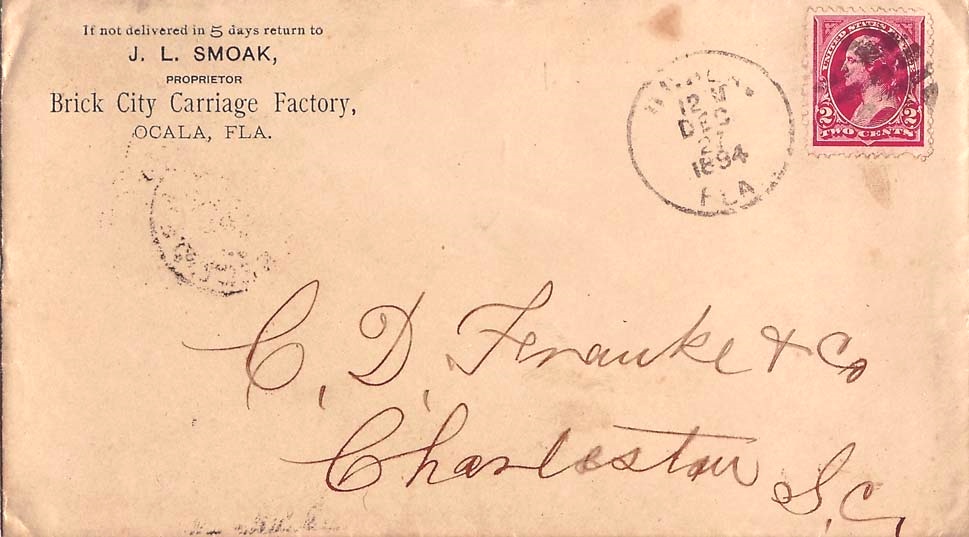 If not delivered in 5 days return to
J. L. SMOAK,
PROPRIETOR
Brick City Carriage Factory,
OCALA, FLA.
UNITED STATES POSTAGE
2 2
TWO CENTS
12 M
DEC
27
1894
FLA
C. D. Franke & Co
Charleston
S. C,